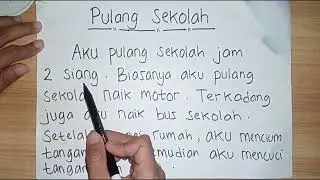 Pulang Sekolah
Aku pulang sekolah jam
2 siang. Biasanya aku pulang
sekolah naik motor. Terkadang
juga aku naik bus sekolah.
rumah, aku mencium
aku mencuci